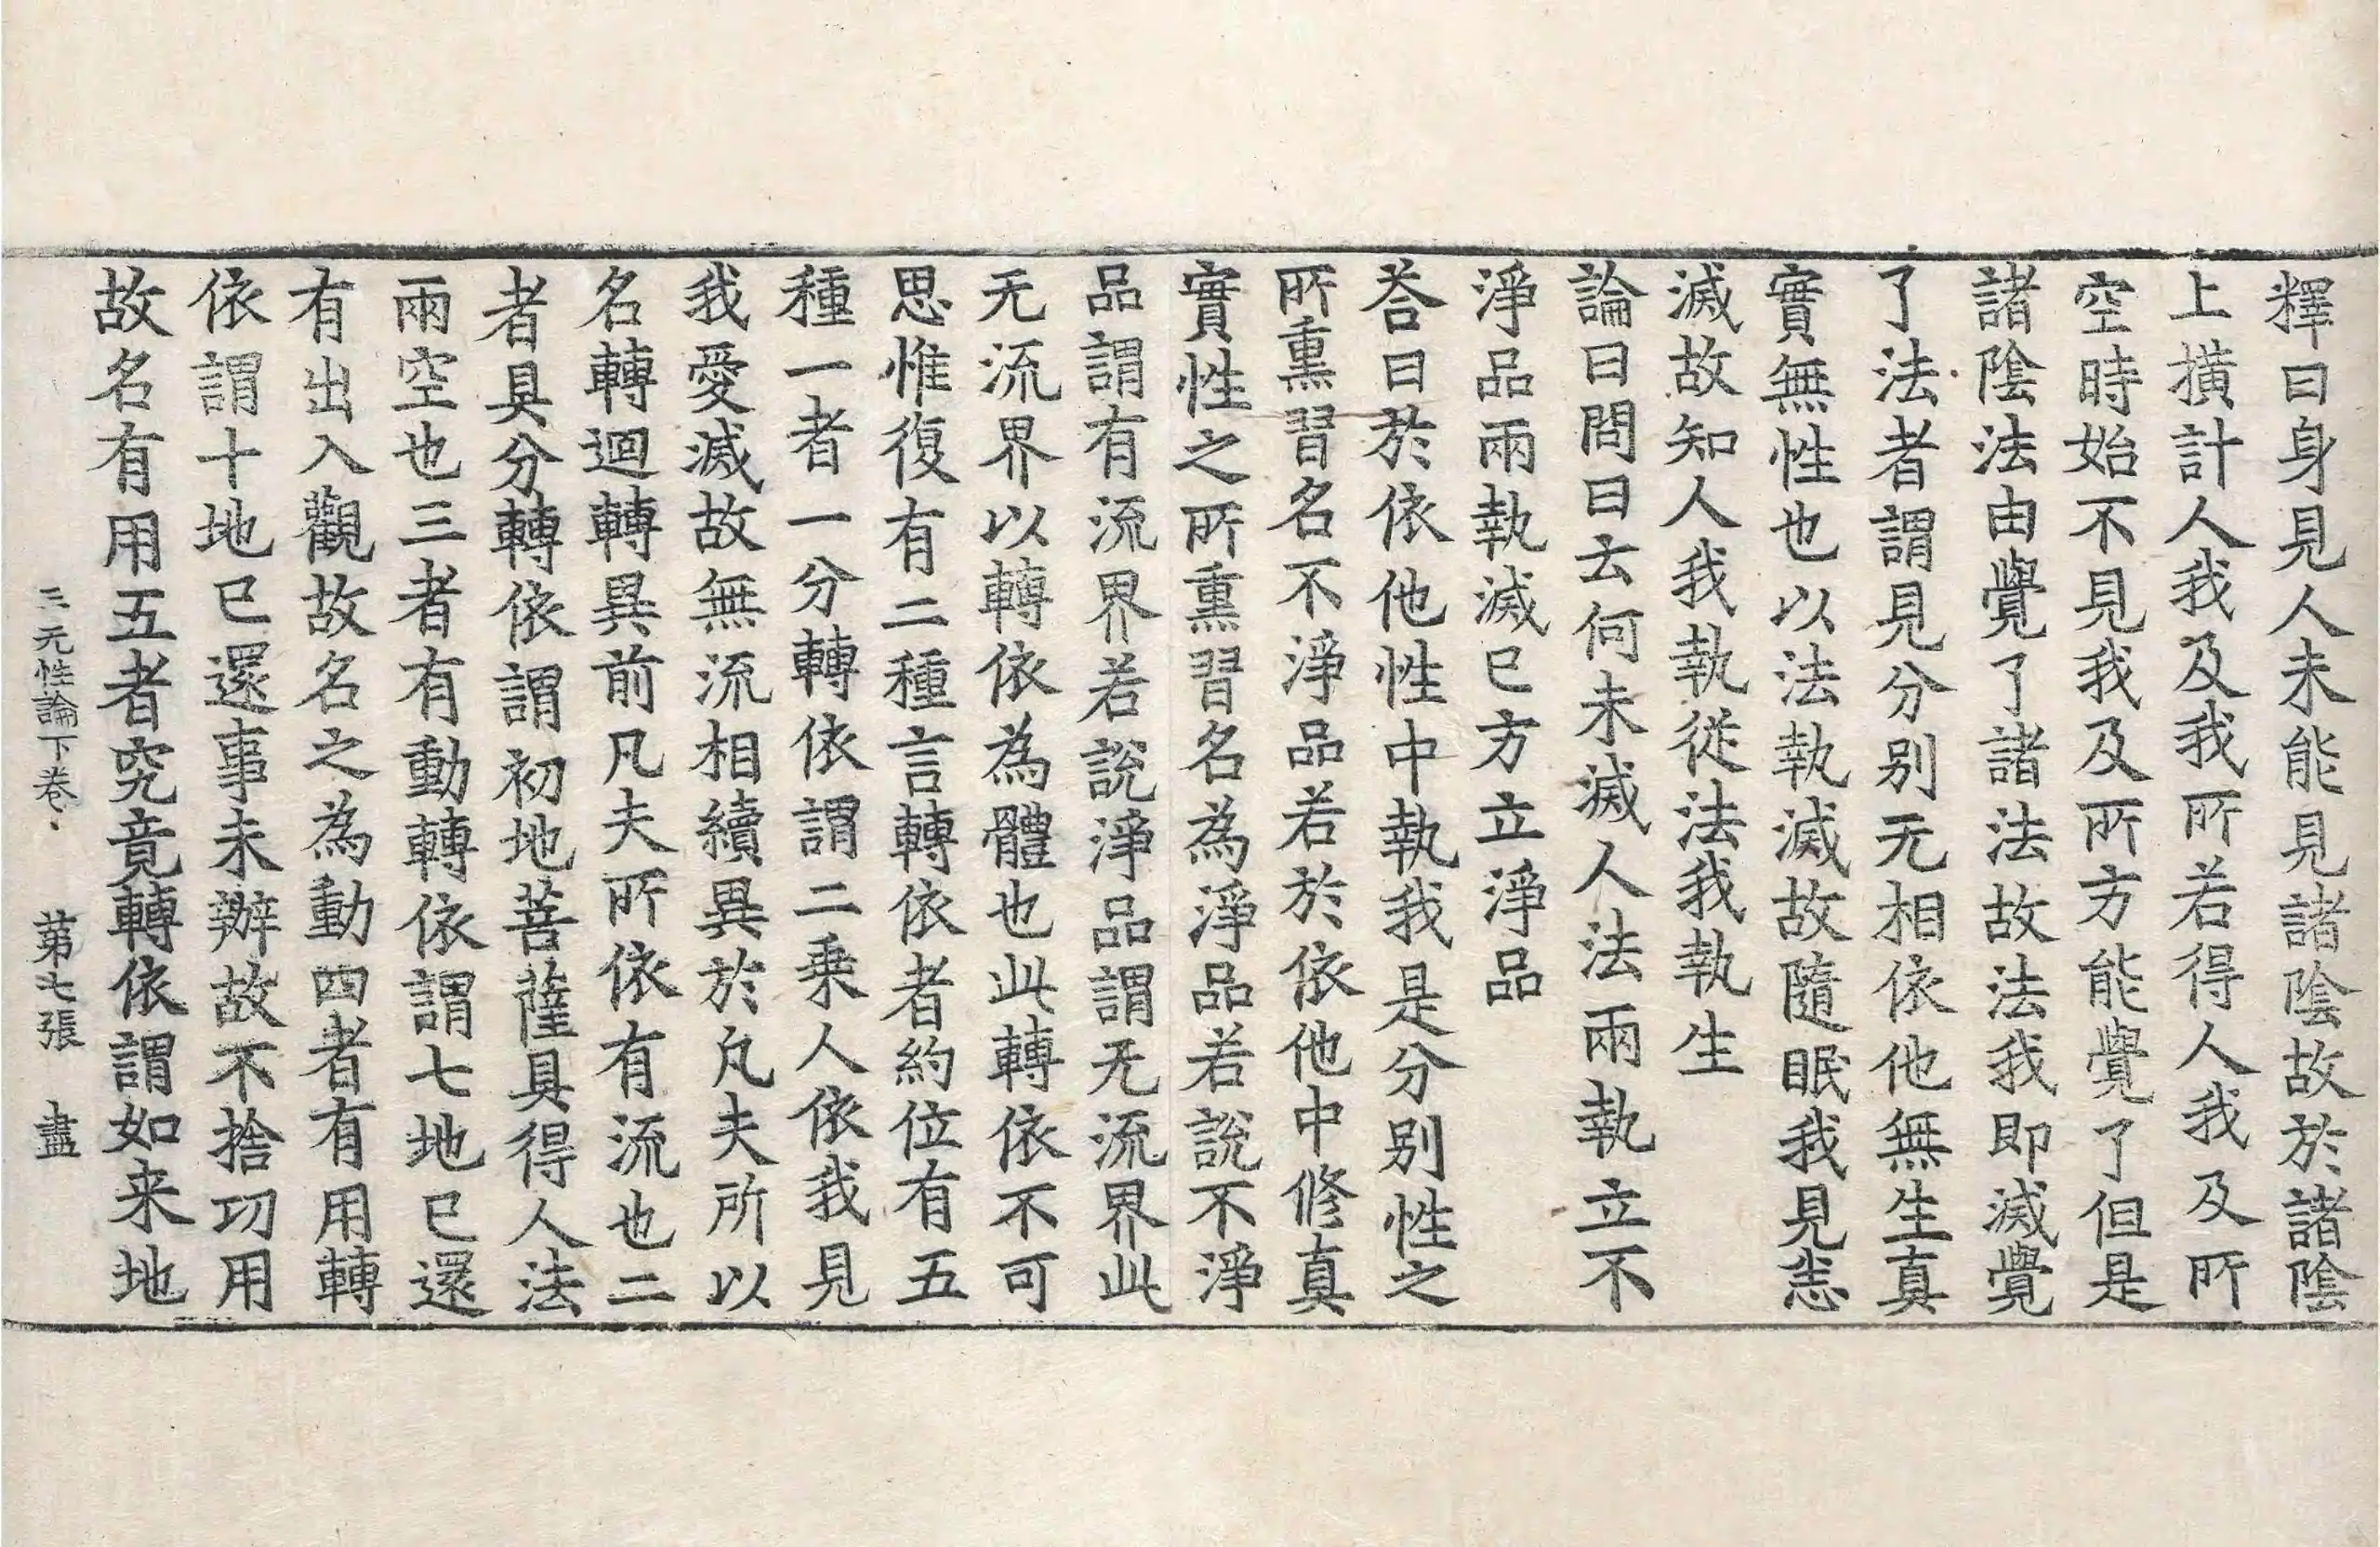 釋曰身見人未能見諸陰故於諸陰
上橫計人我及我所若得人我及所
空時始不見我及所方能覺了但是
諸陰法由覺了諸法故法我即滅覺
了法者謂見分別无相依他無生真
實無性也以法執滅故隨眠我見恙
滅故知人我執從法我執生
論曰問曰云何未滅人法兩執立不
淨品兩執滅已方立淨品
荅曰於依他性中執我是分別性之
所熏習名不淨品若於依他中修真
實性之所熏習名為淨品若說不淨
品謂有流界若說淨品謂无流界此
无流界以轉依為體也此轉依不可
思惟復有二種言轉依者約位有五
種一者一分轉依謂二乘人依我見
我愛滅故無流相續異於凡夫所以
名轉迴轉異前凡夫所依有流也二
者具分轉依謂初地菩薩具得人法
兩空也三者有動轉依謂七地已還
有出入觀故名之為動四者有用轉
依謂十地已還事未辦故不捨功用
故名有用五者究竟轉依謂如来地
三无性論下卷 苐七張 盡